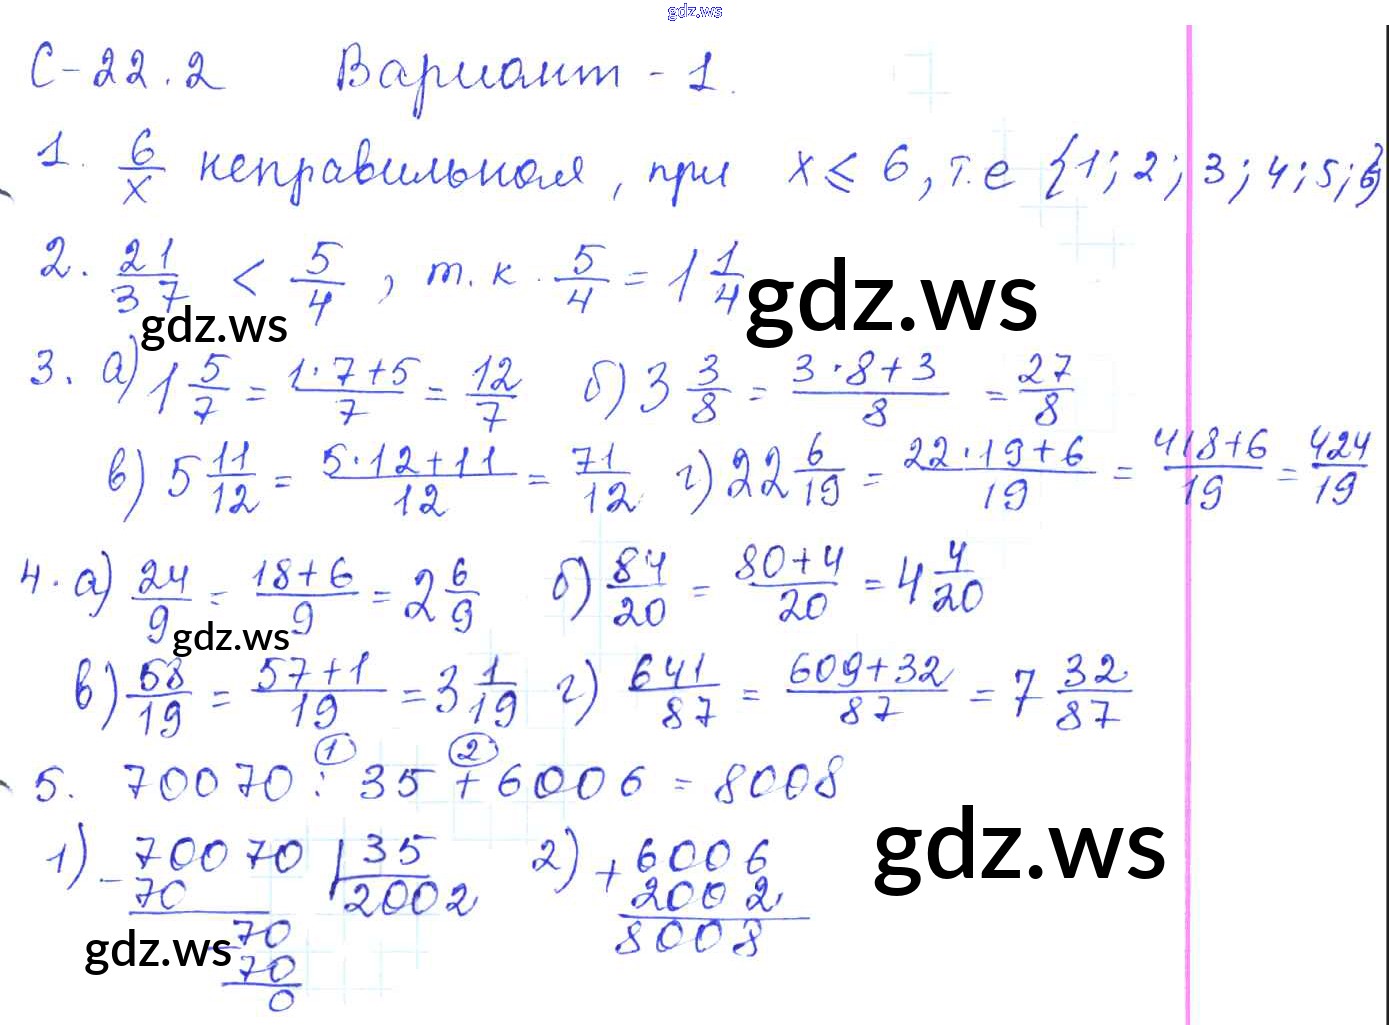 gdz.ws
С-22.2 Вариант-1.
1. 6/x неправильная, при x ⩽ 6, т.е {1; 2; 3; 4; 5; 6}
2. 21/37 < 5/4, т.к. 5/4 = 1 1/4
gdz.ws
gdz.ws
3. а) 1 5/7 = (1·7+5)/7 = 12/7 б) 3 3/8 = (3·8+3)/8 = 27/8
в) 5 11/12 = (5·12+11)/12 = 71/12 г) 22 6/19 = (22·19+6)/19 = (418+6)/19 = 424/19
4. а) 24/9 = (18+6)/9 = 2 6/9 б) 84/20 = (80+4)/20 = 4 4/20
gdz.ws
в) 58/19 = (57+1)/19 = 3 1/19 г) 641/87 = (609+32)/87 = 7 32/87
① ②
5. 70070 : 35 + 6006 = 8008
1) - 70070 | 35 2) + 6006
70 2002 2002
- 70 8008
70
0
gdz.ws
gdz.ws